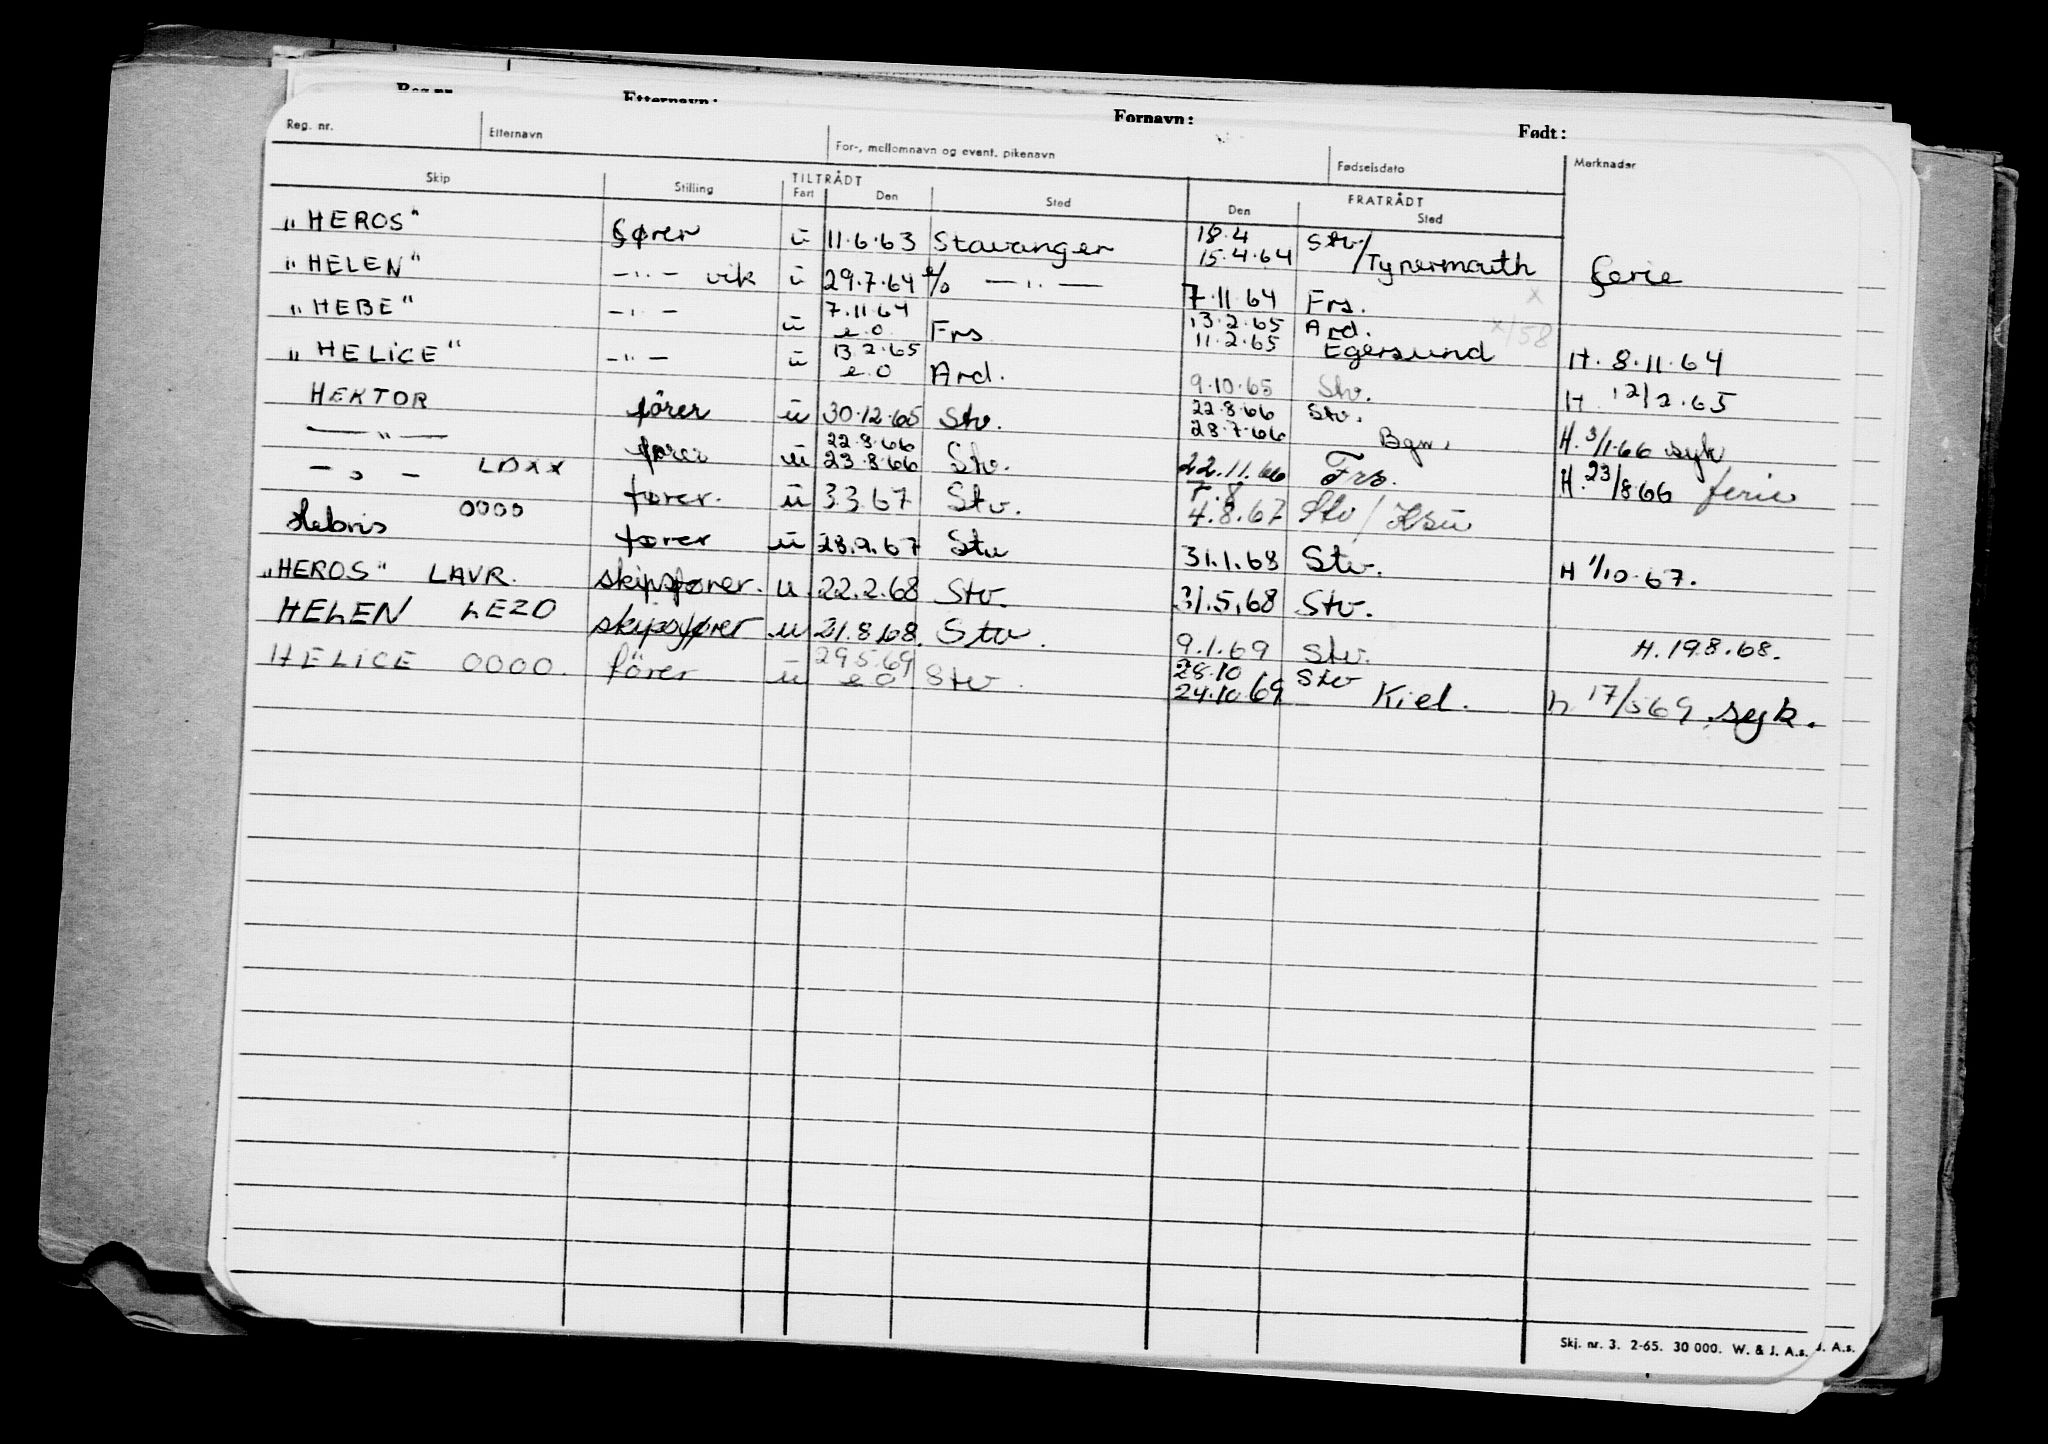 Reg.nr. Etternavn: Fornavn: Født:
Reg. nr. Etternavn For-, mellomnavn og event. pikenavn Fødselsdato Merknader
Skip Stilling TILTRÅDT FRATRÅDT
Fart Den Sted Den Sted
"HEROS" fører u 11.6.63 Stavanger 18.4 Stv/
15.4.64 Tynemouth ferie
"HELEN" -"- vik u 29.7.64 %  -"- 7.11.64 Frs.
"HEBE" -"- u 7.11.64 e.o Frs 13.2.65 Ard.
11.2.65 Egersund H. 8.11.64
x/58
"HELICE" -"- u 13.2.65 e.o Ard. 9.10.65 Stv. H 12/2.65
HEKTOR fører u 30.12.65 Stv. 22.8.66 Stv.
28.7.66 Bgn. H. 3/1.66 syk
-"- fører u 22.8.66
23.8.66 Stv. 22.11.66 Frs. H. 23/8.66 ferie
-"- LDXX fører. u 3.3.67 Stv. 7.8
4.8.67 Stv / Ksu
Hebris 0000 fører u 28.9.67 Stv 31.1.68 Stv. H 1/10.67.
"HEROS" LAVR. skipsfører. u 22.2.68 Stv. 31.5.68 Stv.
HELEN LEZO skipsfører u 21.8.68. Stv. 9.1.69 Stv. H. 19.8.68.
HELICE 0000. fører u 29.5.69 e.o Stv. 28.10 Stv
24.10.69 Kiel. h 17/5 69 syk.
Skj. nr. 3. 2-65. 30 000. W. & J. A.s. J. A.s.